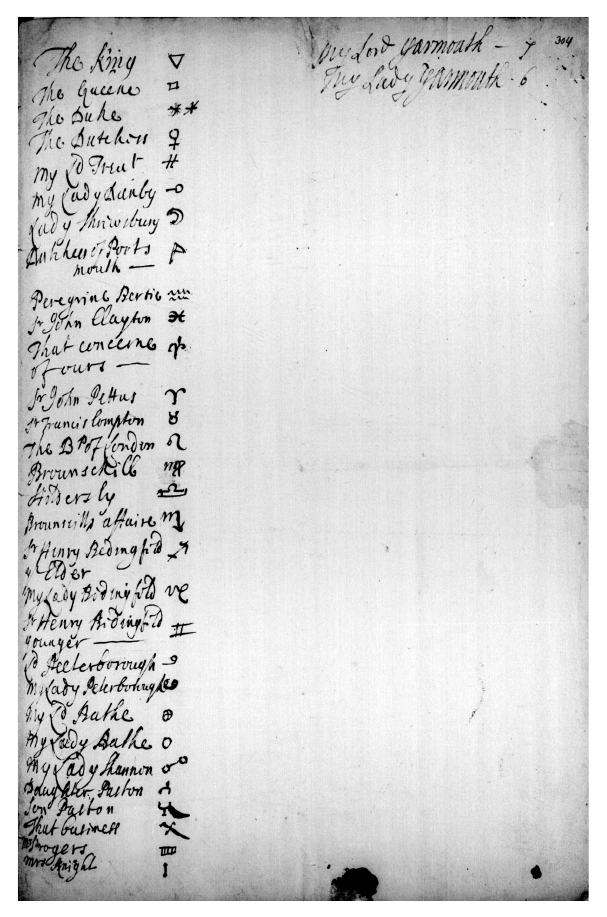 The King ▽
The Queene □
The Duke ** 
The Dutchess ♀
My Ld Treat #
My Lady Danby
Lady Shrewsbury
Dutchess of Ports
mouth —
Peregrine Bertie ♒
Sr John Clayton ♓
That concerne
of ours —
Sr John Pettus ♈
Sr Francis Compton ♉
The Bp of London ♌
Brounsckill ♍
Hildersly ♎
Brounskills affaire ♏
Sr Henry Bedingfild ♐
ye Elder
My Lady Bedingfild ♑
Sr Henry Bedingfild ♊
younger —
Ld Peeterborough
My Lady Peterborough
My Ld Bathe ⊕
My Lady Bathe O
My Lady Shannon
Daughter Paston
Son Paston
That business
Mr Rogers
Mrs Knight
My Lord Yarmouth – 7
My Lady Yarmouth · 6
304